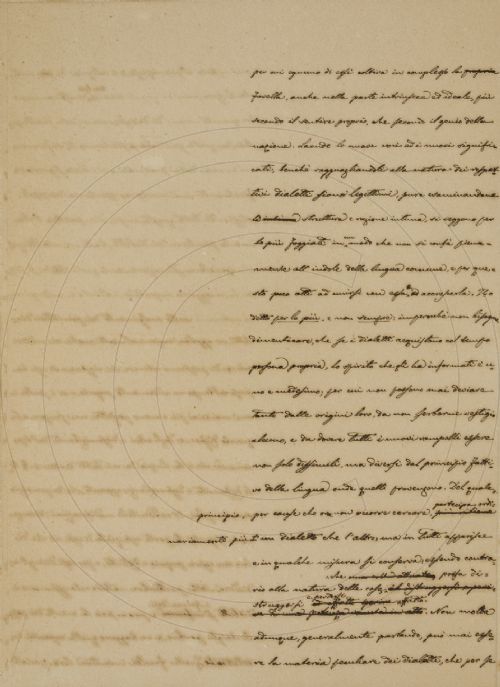 per cui ognuno di essi coltiva in complesso la propria
favella, anche nella parte intrinseca ed ideale, più
secondo il sentire proprio, che secondo il genio della
nazione. Laonde le nuove voci ed i nuovi signifi-
cati, benchè ragguagliandoli alla natura dei rispet-
tivi dialetti siano legittimi, pure esaminandone
la struttura e ragione intima, si veggono per
lo più foggiati in modo che non si confà piena-
mente all'indole della lingua comune, e per que-
sto poco atti ad unirsi con essa, ed accrescerla. Ho
detto per lo più, e non sempre; imperocchè non bisogna
dimenticare, che se i dialetti acquistano col tempo
persona propria, lo spirito che gli ha informati è u-
no e medesimo; per cui non possono mai deviare
tanto dalle origini loro, da non serbarne vestigio
alcuno, e da dovere tutti i nuovi rampolli essere
non solo dissimili, ma diversi dal principio fatti-
vo della lingua onde quelli provengono. Del quale
principio, per cause che ora non occorre cercare, partecipa ordi-
nariamente più un dialetto che l'altro; ma in tutti apparisce
e in qualche misura si conserva, essendo contra-
rio alla natura delle cose, che possa di-
struggersi affatto. Non molto
adunque, generalmente parlando, può mai esse-
re la materia peculiare dei dialetti, che per se